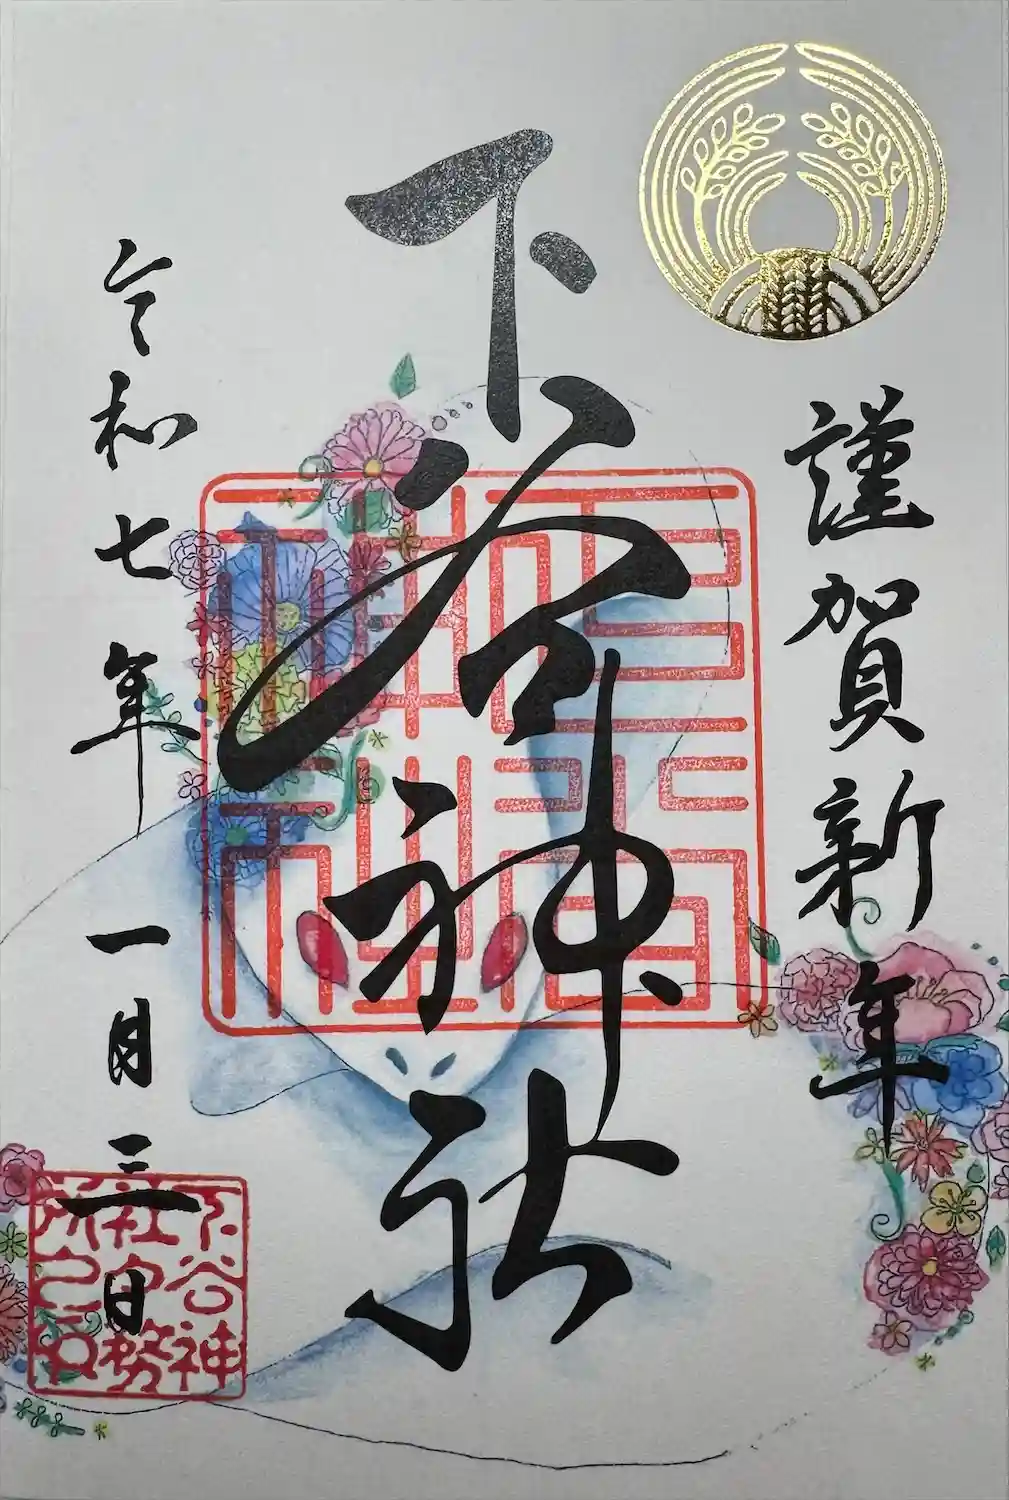 謹賀新年
下谷神社
令和七年一月三日
下谷神
社宮務
所之印